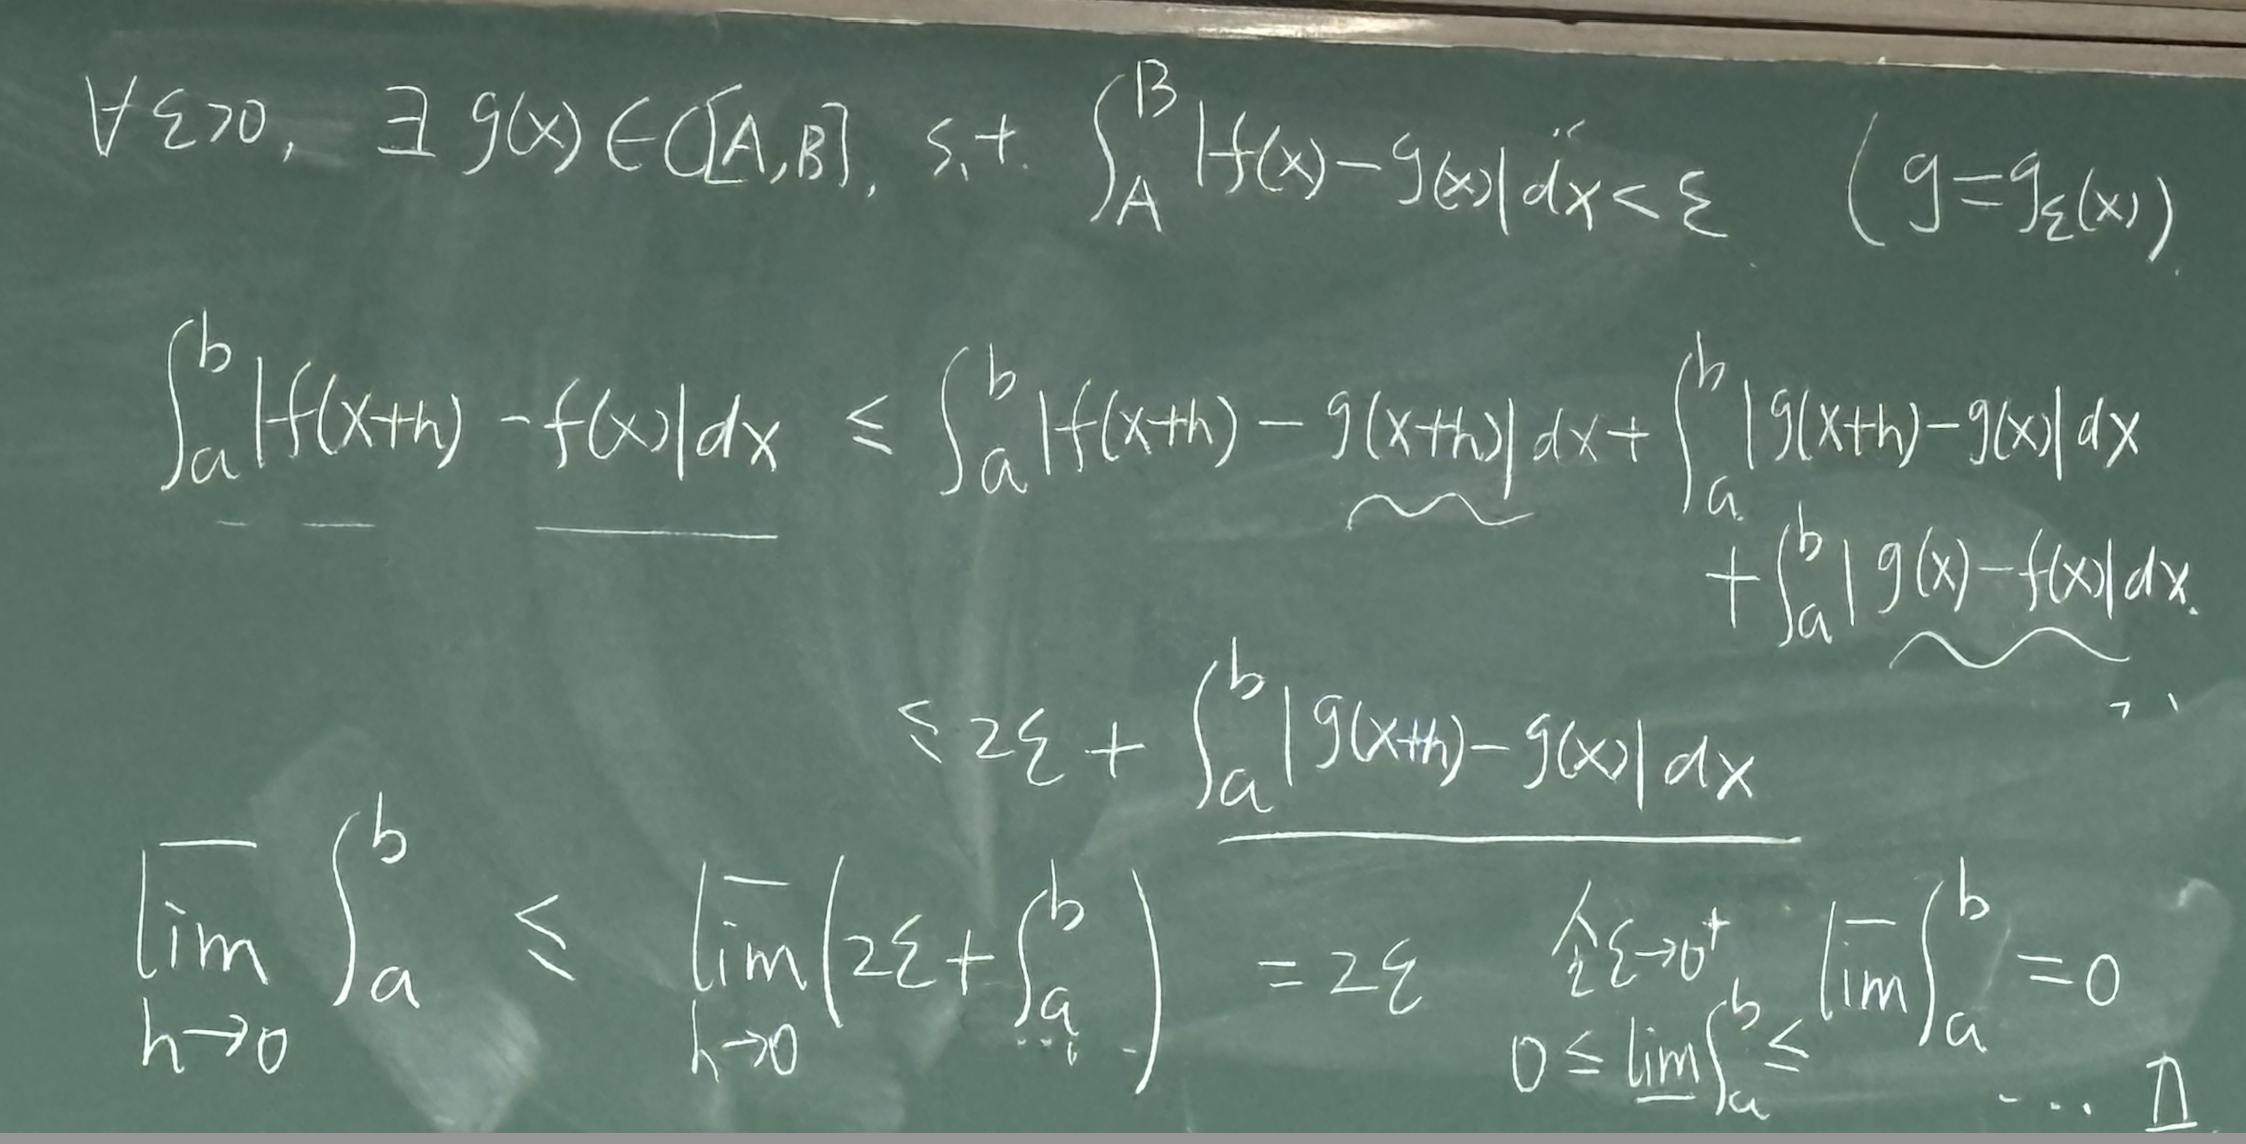 ∀ε>0, ∃ g(x)∈C[A,B], s.t. ∫_A^B |f(x)-g(x)|dx<ε (g=g_ε(x)).
∫_a^b |f(x+h)-f(x)|dx ≤ ∫_a^b |f(x+h)-g(x+h)|dx + ∫_a^b |g(x+h)-g(x)|dx
+∫_a^b |g(x)-f(x)|dx.
≤ 2ε + ∫_a^b |g(x+h)-g(x)|dx
\overline{lim}_{h→0} ∫_a^b ≤ \overline{lim}_{h→0} (2ε+∫_a^b ...) = 2ε 令ε→0⁺ \overline{lim} ∫_a^b = 0
0 ≤ \underline{lim} ∫_a^b ≤ ... □